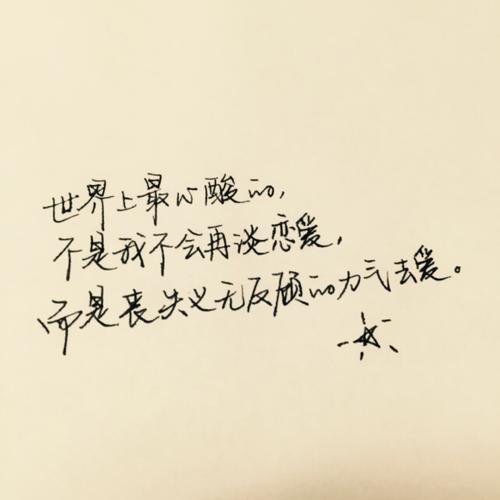 世界上最心酸的，
不是我不会再谈恋爱，
而是丧失义无反顾的力气去爱。